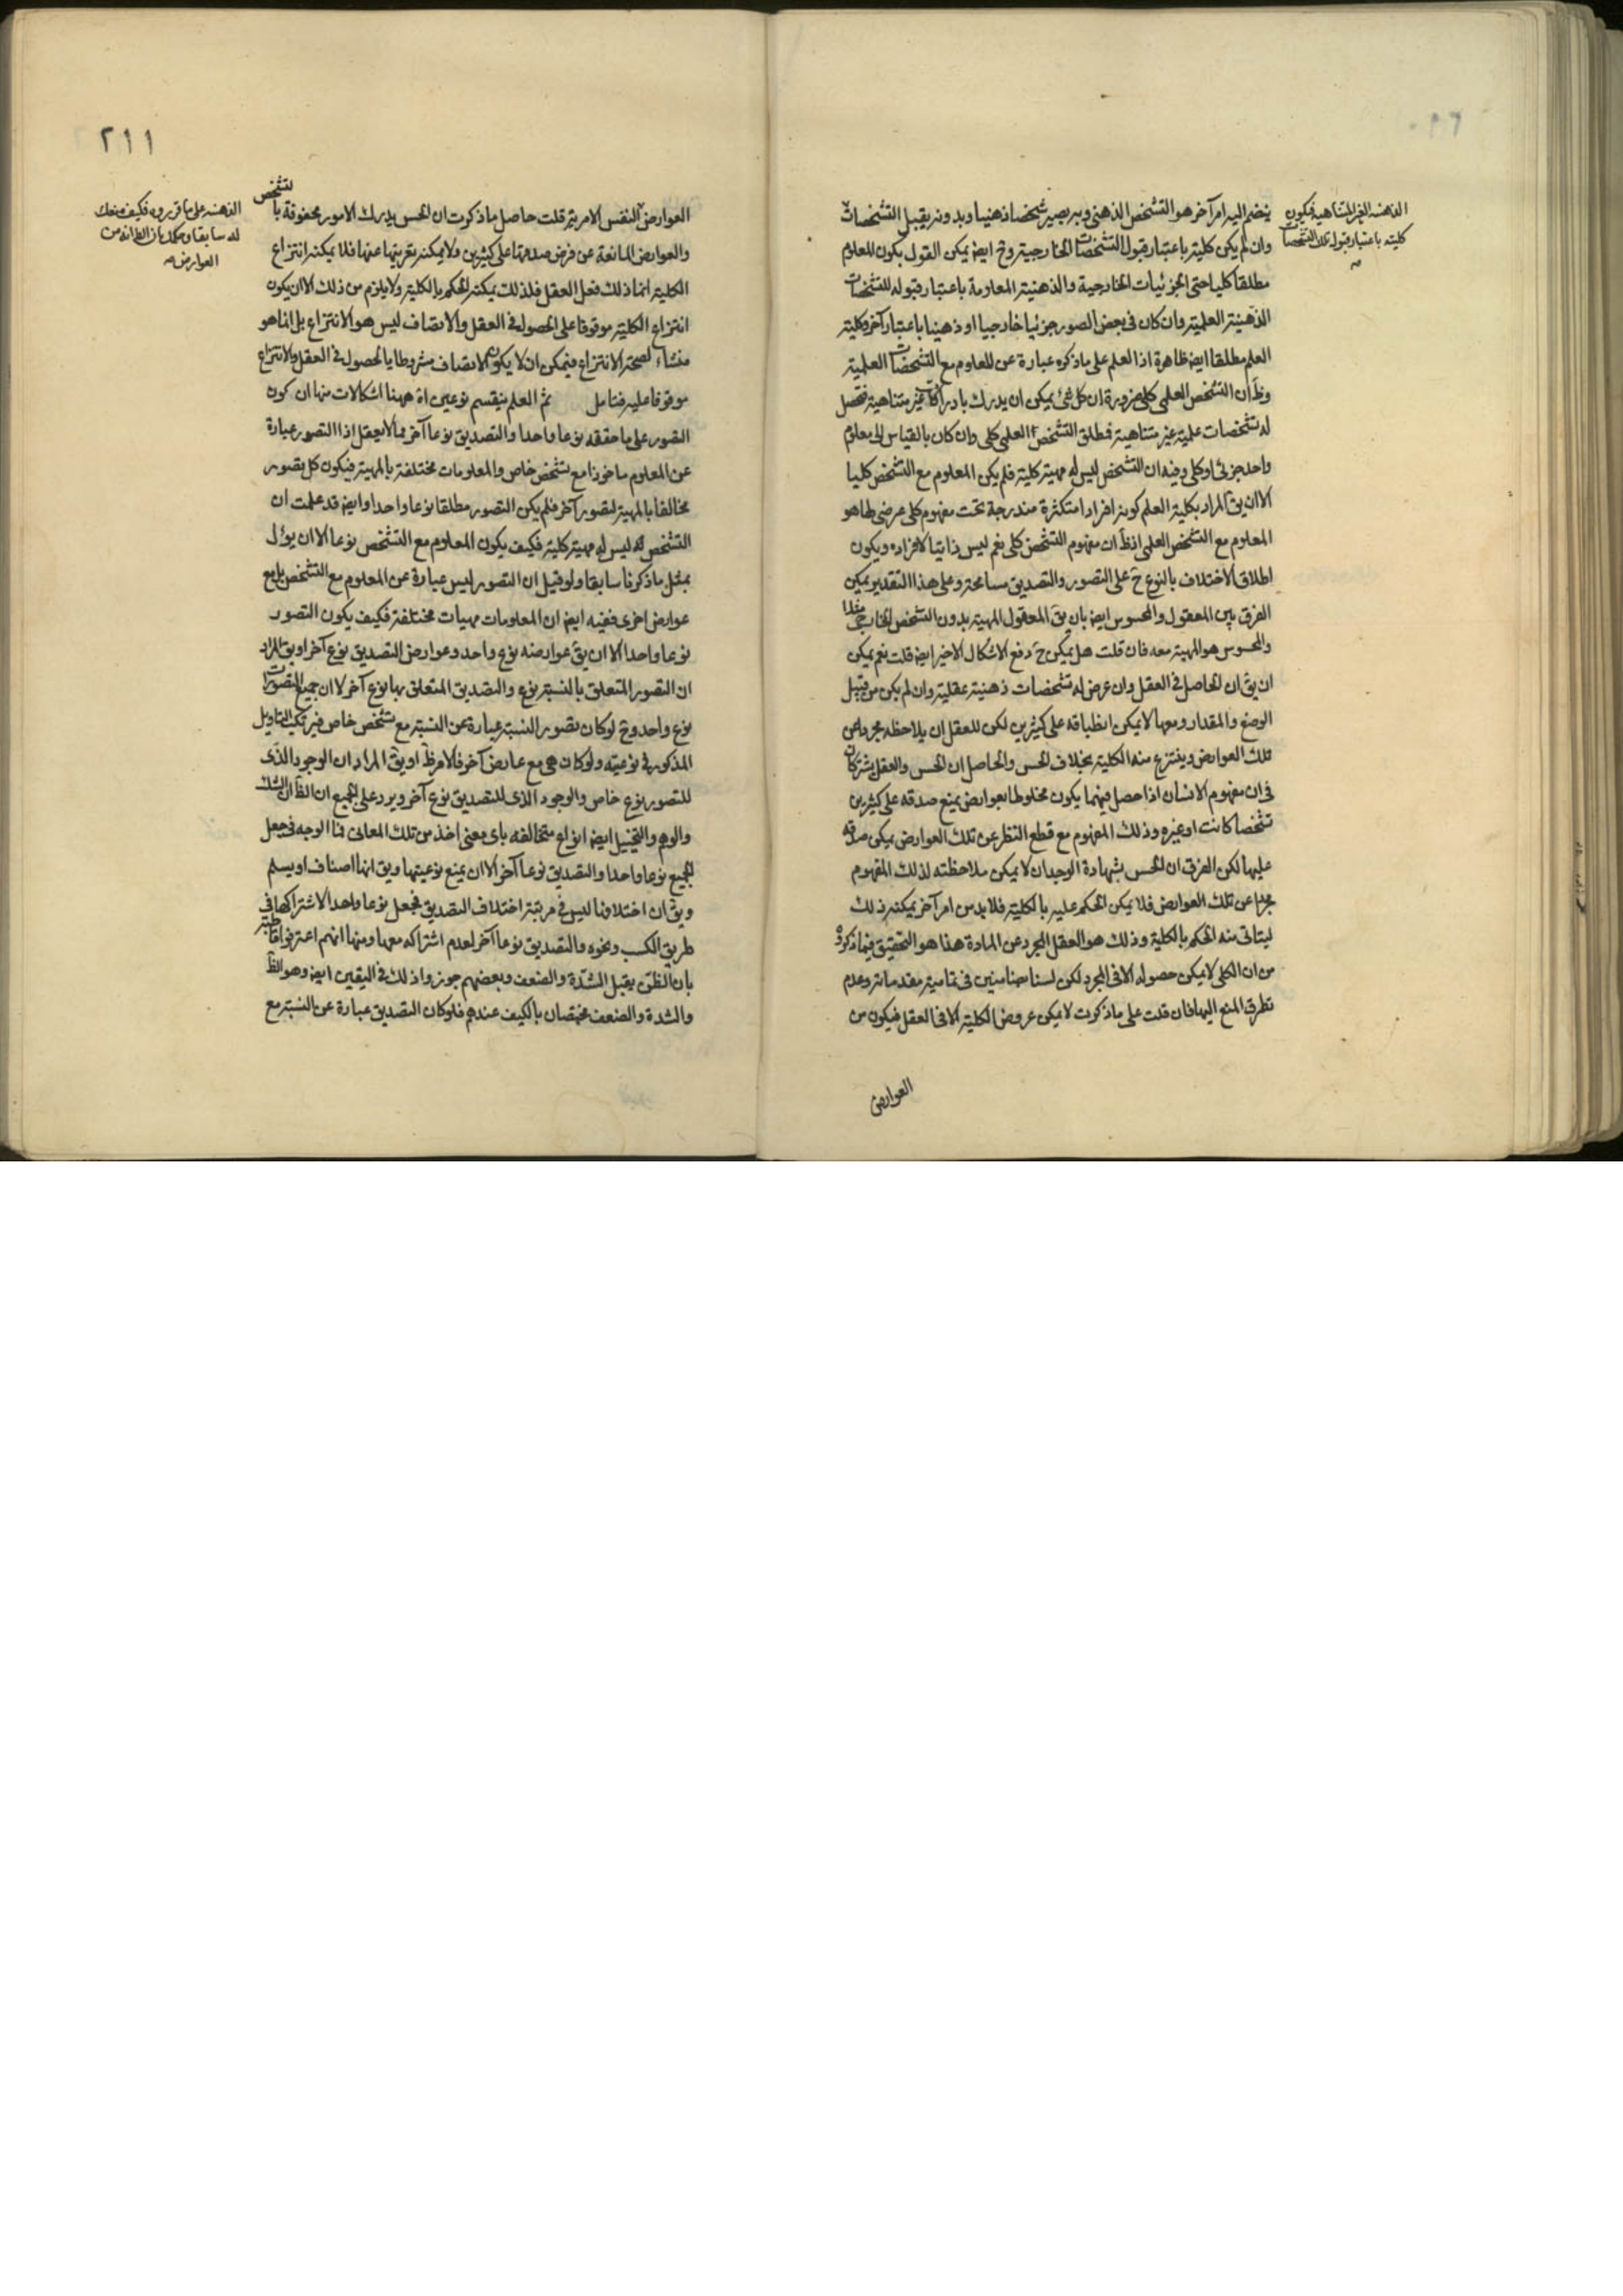 ينضم اليه امر آخر هو التشخص الذهنى وبه يصير شخصا ذهنيا وبدونه يقبل التشخصات
الذهنية الغير المتناهية فيكون
كليته باعتبار قبول تلك التشخصات
وان لم يكن كليته باعتبار قبول التشخصات الخارجية وح ايضا يمكن القول بكون المعلوم
مطلقا كليا حتى الجزئيات الخارجية والذهنية المعلومة باعتبار قبوله للتشخصات
الذهنية العلمية وان كان فى بعض الصور جزئيا خارجيا او ذهنيا باعتبار آخر وكلية
العلم مطلقا ايضا ظاهرة اذ العلم على ما ذكره عبارة عن المعلوم مع التشخصات العلمية
وظ ان التشخص العلمى كلى ضرورة ان كل شئ يمكن ان يدرك بادراكات غير متناهية فتحصل
له تشخصات علمية غير متناهية فمطلق التشخص العلمى كلى وان كان بالقياس الى معلوم
واحد جزئى او كلى وفيه ان التشخص ليس له مهية كلية فلم يكن المعلوم مع التشخص كليا
الا ان يق المراد بكلية العلم كونه افرادا متكثرة مندرجة تحت مفهوم كلى عرضى لها هو
المعلوم مع التشخص العلمى اذ ظ ان مفهوم التشخص كلى نعم ليس ذاتيا لافراده ويكون
اطلاق الاختلاف بالنوع ح على التصور والتصديق مسامحة وعلى هذا التقدير يمكن
الفرق بين المعقول والمحسوس ايضا بان يق المعقول المهية بدون التشخص الخارجى مثلا
والمحسوس هو المهية معه فان قلت هل يمكن ح دفع الاشكال الاخير ايضا قلت نعم يمكن
ان يق ان الحاصل فى العقل وان عرض له تشخصات ذهنية عقلية وان لم يكن من قبيل
الوضع والمقدار ومعها لا يمكن انطباقه على كثيرين لكن للعقل ان يلاحظه مجردا عن
تلك العوارض وينتزع منه الكلية بخلاف الحس والحاصل ان الحس والعقل يشتركان
فى ان مفهوم الانسان اذا حصل فيهما يكون مخلوطا بعوارض يمنع صدقه على كثيرين
تشخصا كانت او غيره وذلك المفهوم مع قطع النظر عن تلك العوارض يمكن صدقه
عليها لكن الفرق ان الحس بشهادة الوجدان لا يمكن ملاحظته لذلك المفهوم
مجردا عن تلك العوارض فلا يمكن الحكم عليه بالكلية فلا بد من امر آخر يمكنه ذلك
ليتاتى منه الحكم بالكلية وذلك هو العقل المجرد عن المادة هذا هو التحقيق فيما ذكروه
من ان الكلى لا يمكن حصوله الا فى المجرد لكن لسنا ضامنين فى تمامية مقدماته وعدم
تطرق المنع اليها فان قلت على ما ذكرت لا يمكن عروض الكلية الا فى العقل فيكون من
العوارض
٢١١
العوارض النفس الامرية قلت حاصل ما ذكرت ان الحس يدرك الامور محفوفة بالتشخص
الذهنية على ما قررره فكيف
له سابقا
العوارض
والعوارض المانعة عن فرض صدقها على كثيرين ولا يمكنه تعريتها عنها فلا يمكنه انتزاع
الكلية انما ذلك فعل العقل فلذلك يمكنه الحكم بالكلية ولا يلزم من ذلك الا ان يكون
انتزاع الكلية موقوفا على الحصول فى العقل والاتصاف ليس هو الانتزاع بل انما هو
منشاء لصحة الانتزاع فيمكن ان لا يكون الاتصاف مشروطا بالحصول فى العقل والانتزاع
موقوفا عليه فتامل ثم العلم ينقسم نوعين اه ههنا اشكالات منها ان كون
التصور على ما حققه نوعا واحدا والتصديق نوعا آخر مما لا يعقل اذ التصور عبارة
عن المعلوم ماخوذا مع تشخص خاص والمعلومات مختلفة بالمهية فيكون كل تصور
مخالفا بالمهية لتصور آخر فلم يكن التصور مطلقا نوعا واحدا وايضا قد علمت ان
التشخص ليس له مهية كلية فكيف يكون المعلوم مع التشخص نوعا الا ان يؤل
بمثل ما ذكرنا سابقا ولو قيل ان التصور ليس عبارة عن المعلوم مع التشخص بل مع
عوارض اخرى ففيه ايضا ان المعلومات مهيات مختلفة فكيف يكون التصور
نوعا واحدا الا ان يق عوارضه نوع واحد وعوارض التصديق نوع آخر او يق المراد
ان التصور المتعلق بالنسبة نوع والتصديق المتعلق بها نوع آخر لا ان جميع التصورات
نوع واحد وح لو كان تصور النسبة عبارة عن النسبة مع تشخص خاص فيرتكب التاويل
المذكور فى نوعيته ولو كان هى مع عارض آخر فالامر ظ او يق المراد ان الوجود الذى
للتصور نوع خاص والوجود الذى للتصديق نوع آخر ويرد على الجميع ان الظ ان الشك
والوهم والتخييل ايضا انواع متخالفة باى معنى اخذ من تلك المعانى فما الوجه فى جعل
الجميع نوعا واحدا والتصديق نوعا آخر الا ان يمنع نوعيتها ويق انها اصناف او يسلم
ويق ان اختلافها ليس فى مرتبة اختلاف التصديق فجعل نوعا واحدا لاشتراكها فى
طريق الكسب ونحوه والتصديق نوعا آخر لعدم اشتراكه معها ومنها انهم اعترفوا قاطبة
بان الظن يقبل الشدة والضعف وبعضهم جوزوا ذلك فى اليقين ايضا وهو الظ
والشدة والضعف مختصان بالكيف عندهم فلو كان التصديق عبارة عن النسبة مع